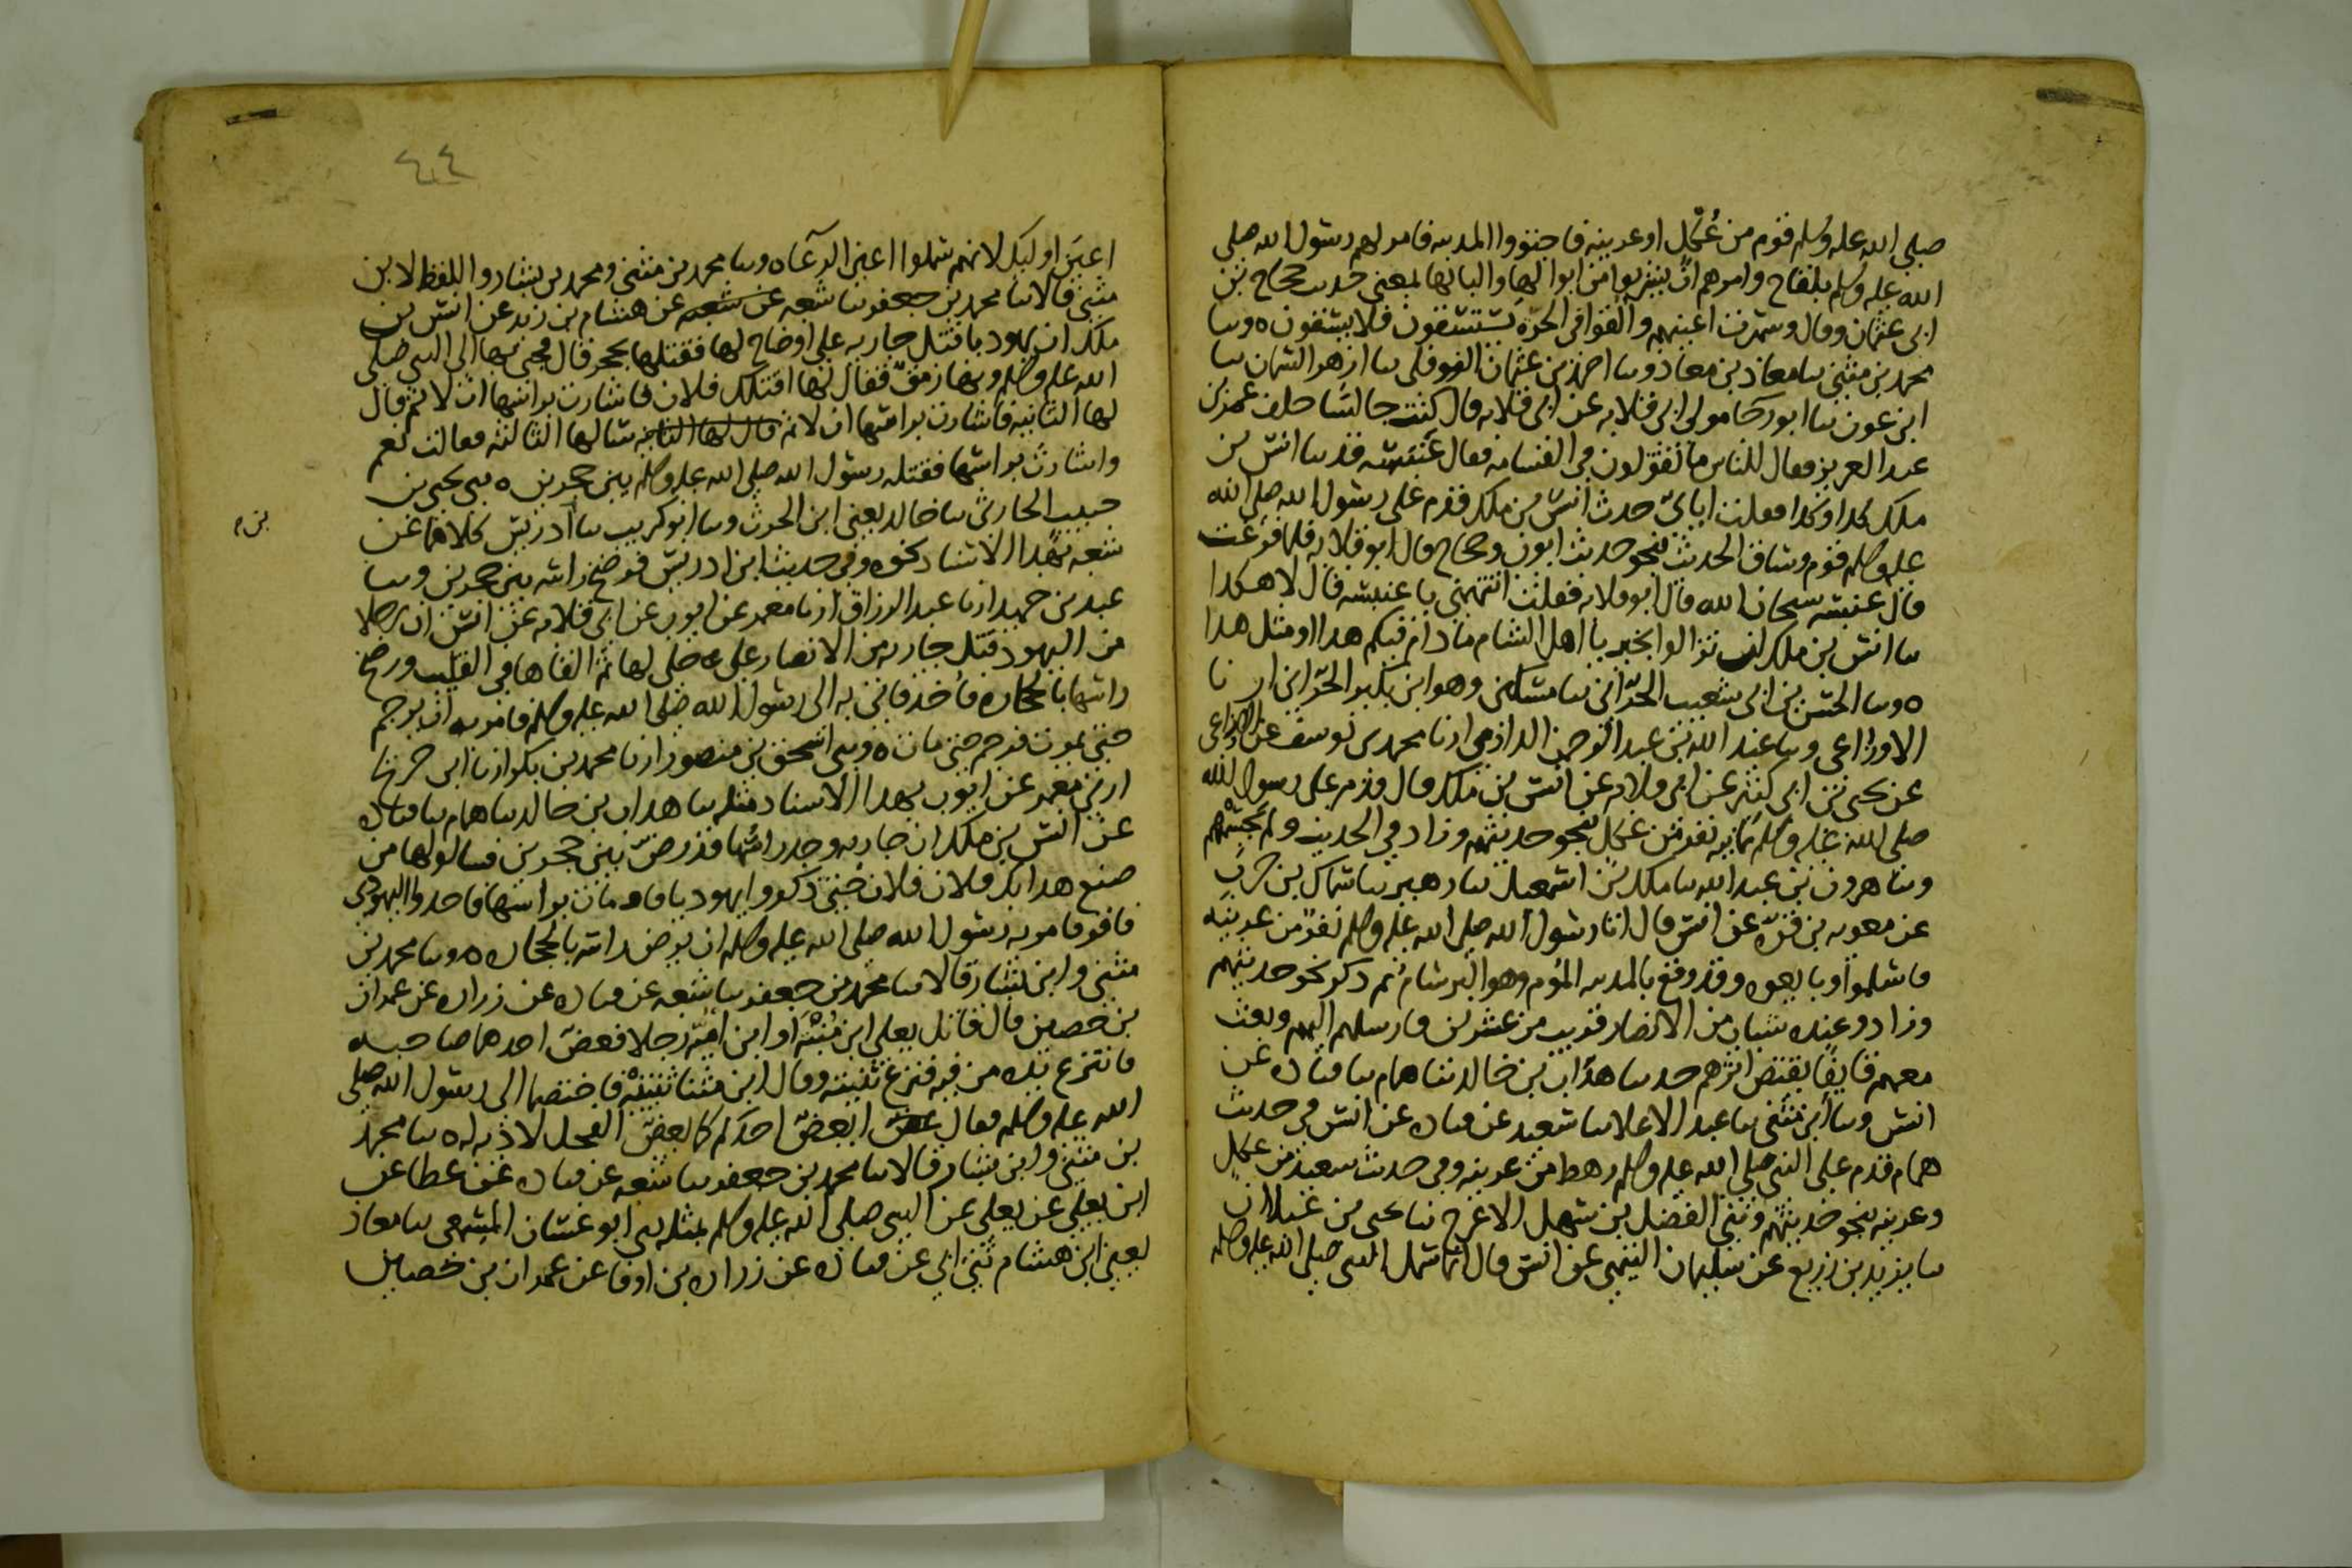 صلى الله عليه وسلم قوم من عُكل او عرينه فاجتووا المدينه فامر لهم رسول الله صلى
الله عليه وسلم بلقاح وامرهم ان يشربوا من ابوالها والبانها بمعنى حديث حجاج بن
ابى عثمان وقال وسمرت اعينهم والقوا فى الحرّة يستسقون فلا يسقون ه وسا
محمد بن مثنى سا معاذ بن معاذ وسا احمد بن عثمان النوفلى سا ازهر السمان سا
ابن عون سا ابو رجا مولى ابى قلابه عن ابى قلابه قال كنت جالسًا خلف عمر بن
عبد العزيز فقال للناس ما تقولون فى القسامه فقال عنبسه قد سا انس بن
ملك كدا وكدا فقلت اياىّ حدث انس بن ملك قدم على رسول الله صلى الله
عليه وسلم قوم وساق الحديث بنحو حديث ايوب وحجاج قال ابو قلابه فلما فرغت
قال عنبسه سبحان الله قال ابو قلابه فقلت اتتهمنى يا عنبسه قال لا هكدا
سا انس بن ملك لن تزالوا بخير يا اهل الشام ما دام فيكم هدا او مثل هدا
ه وسا الحسن بن ابى شعيب الحرّانى سا مسكين وهو ابن بكير الحرّانى ارنا
الاوزاعى وسا عبد الله بن عبد الرحمن الدارمى ارنا محمد بن يوسف عن الاوزاعى
عن يحيى بن ابى كثير عن ابى قلابه عن انس بن ملك قال قدم على رسول الله
صلى الله عليه وسلم ثمانيه نفر من عكل بنحو حديثهم وزاد فى الحديث ولم يحسمهم
وسا هرون بن عبد الله سا ملك بن اسمعيل سا زهير سا سماك بن حرب
عن معويه بن قرّه عن انس قال اتا رسول الله صلى الله عليه وسلم نفرٌ من عرينه
فاسلموا وبايعوه وقد وقع بالمدينه المُوم وهو البرسام ثم ذكر نحو حديثهم
وزاد وعنده شباب من الانصار قريب من عشرين فارسلهم اليهم وبعث
معهم قايفًا يقتص اثرهم حدسا هدّاب بن خالد سا همام سا قتاده عن
انس وسا ابن مثنى سا عبد الاعلا سا سعيد عن قتاده عن انس فى حديث
همام قدم على النبى صلى الله عليه وسلم رهط من عرينه وفى حديث سعيد من عكل
وعرينه بنحو حديثهم وثنى الفضل بن سهل الاعرج سا يحيى بن غيلان
سا يزيد بن زريع عن سليمان التيمى عن انس قال انما سمل النبى صلى الله عليه وسلم
٤٤
اعين اوليك لانهم سملوا اعين الرعاه وسا محمد بن مثنى ومحمد بن بشار واللفظ لابن
مثنى قالا سا محمد بن جعفر سا شعبه عن شعبه عن هشام بن زيد عن انس بن
ملك ان يهوديا قتل جاريه على اوضاح لها فقتلها بحجر قال فجى بها الى النبى صلى
الله عليه وسلم وبها رمقٌ فقال لها اقتلك فلان فاشارت براسها ان لا ثم قال
لها الثانيه فاشارت براسها ان لا ثم قال لها الثانيه سالها الثالثه فقالت نعم
واشارت براسها فقتله رسول الله صلى الله عليه وسلم بين حجرين ه سى يحيى بن
حبيب الحارثى سا خالد يعنى ابن الحرث وسا ابو كريب سا ادريس كلاهما عن
بن م
شعبه بهدا الاسناد نحوه وفى حديث ابن ادريس فرضخ راسه بين حجرين وسا
عبد بن حميد ارنا عبد الرزاق ارنا معمر عن ايوب عن ابى قلابه عن انس ان رجلا
من اليهود قتل جاريه من الانصار على حلى لها ثم القاها فى القليب ورضخ
راسها بالحجاره فاخذ فاتى به الى رسول الله صلى الله عليه وسلم فامر به ان يرجم
حتى يموت فرجم حتى مات ه وسى اسحق بن منصور ارنا محمد بن بكر ارنا ابن جريج
ارنى معمر عن ايوب بهدا الاسناد مثله سا هداب بن خالد سا همام سا قتاده
عن انس بن ملك ان جاريه وجد راسها قد رضّ بين حجرين فسالوها من
صنع هدا بك فلان فلان حتى ذكروا يهوديا فاومات براسها فاخذوا اليهودى
فاقر فامر به رسول الله صلى الله عليه وسلم ان يرض راسه بالحجاره ه وسا محمد بن
مثنى وابن بشار قالا سا محمد بن جعفر سا شعبه عن قتاده عن زراره عن عمران
بن حصين قال قاتل يعلى ابن مُنْيَه او ابن اميّه رجلا فعضّ احدهما صاحبه
فانتزع يده من فيه فنزع ثنيته وقال ابن مثنا ثنيتيْه فاختصما الى رسول الله صلى
الله عليه وسلم فقال ايعضّ احدكم كما يعضّ الفحل لا ديه له ه سا محمد
بن مثنى وابن بشار قالا سا محمد بن جعفر سا شعبه عن قتاده عن عطا عن
ابن يعلى عن يعلى عن النبى صلى الله عليه وسلم بمثله سى ابو غسان المسمعى سا معاذ
يعنى ابن هشام ثنى ابى عن قتاده عن زراره بن اوفا عن عمران بن حصين